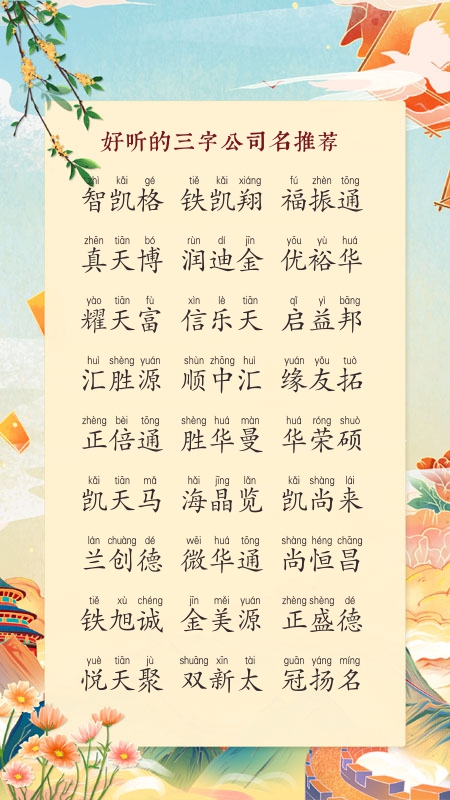 好听的三字公司名推荐
zhì kǎi gé tiě kǎi xiáng fú zhèn tōng
智凯格 铁凯翔 福振通
zhēn tiān bó rùn dí jīn yōu yù huá
真天博 润迪金 优裕华
yào tiān fù xìn lè tiān qǐ yì bāng
耀天富 信乐天 启益邦
huì shèng yuán shùn zhōng huì yuán yǒu tuò
汇胜源 顺中汇 缘友拓
zhèng bèi tōng shèng huá màn huá róng shuò
正倍通 胜华曼 华荣硕
kǎi tiān mǎ hǎi jīng lǎn kǎi shàng lái
凯天马 海晶览 凯尚来
lán chuàng dé wēi huá tōng shàng héng chāng
兰创德 微华通 尚恒昌
tiě xù chéng jīn měi yuán zhèng shèng dé
铁旭诚 金美源 正盛德
yuè tiān jù shuāng xīn tài guān yáng míng
悦天聚 双新太 冠扬名